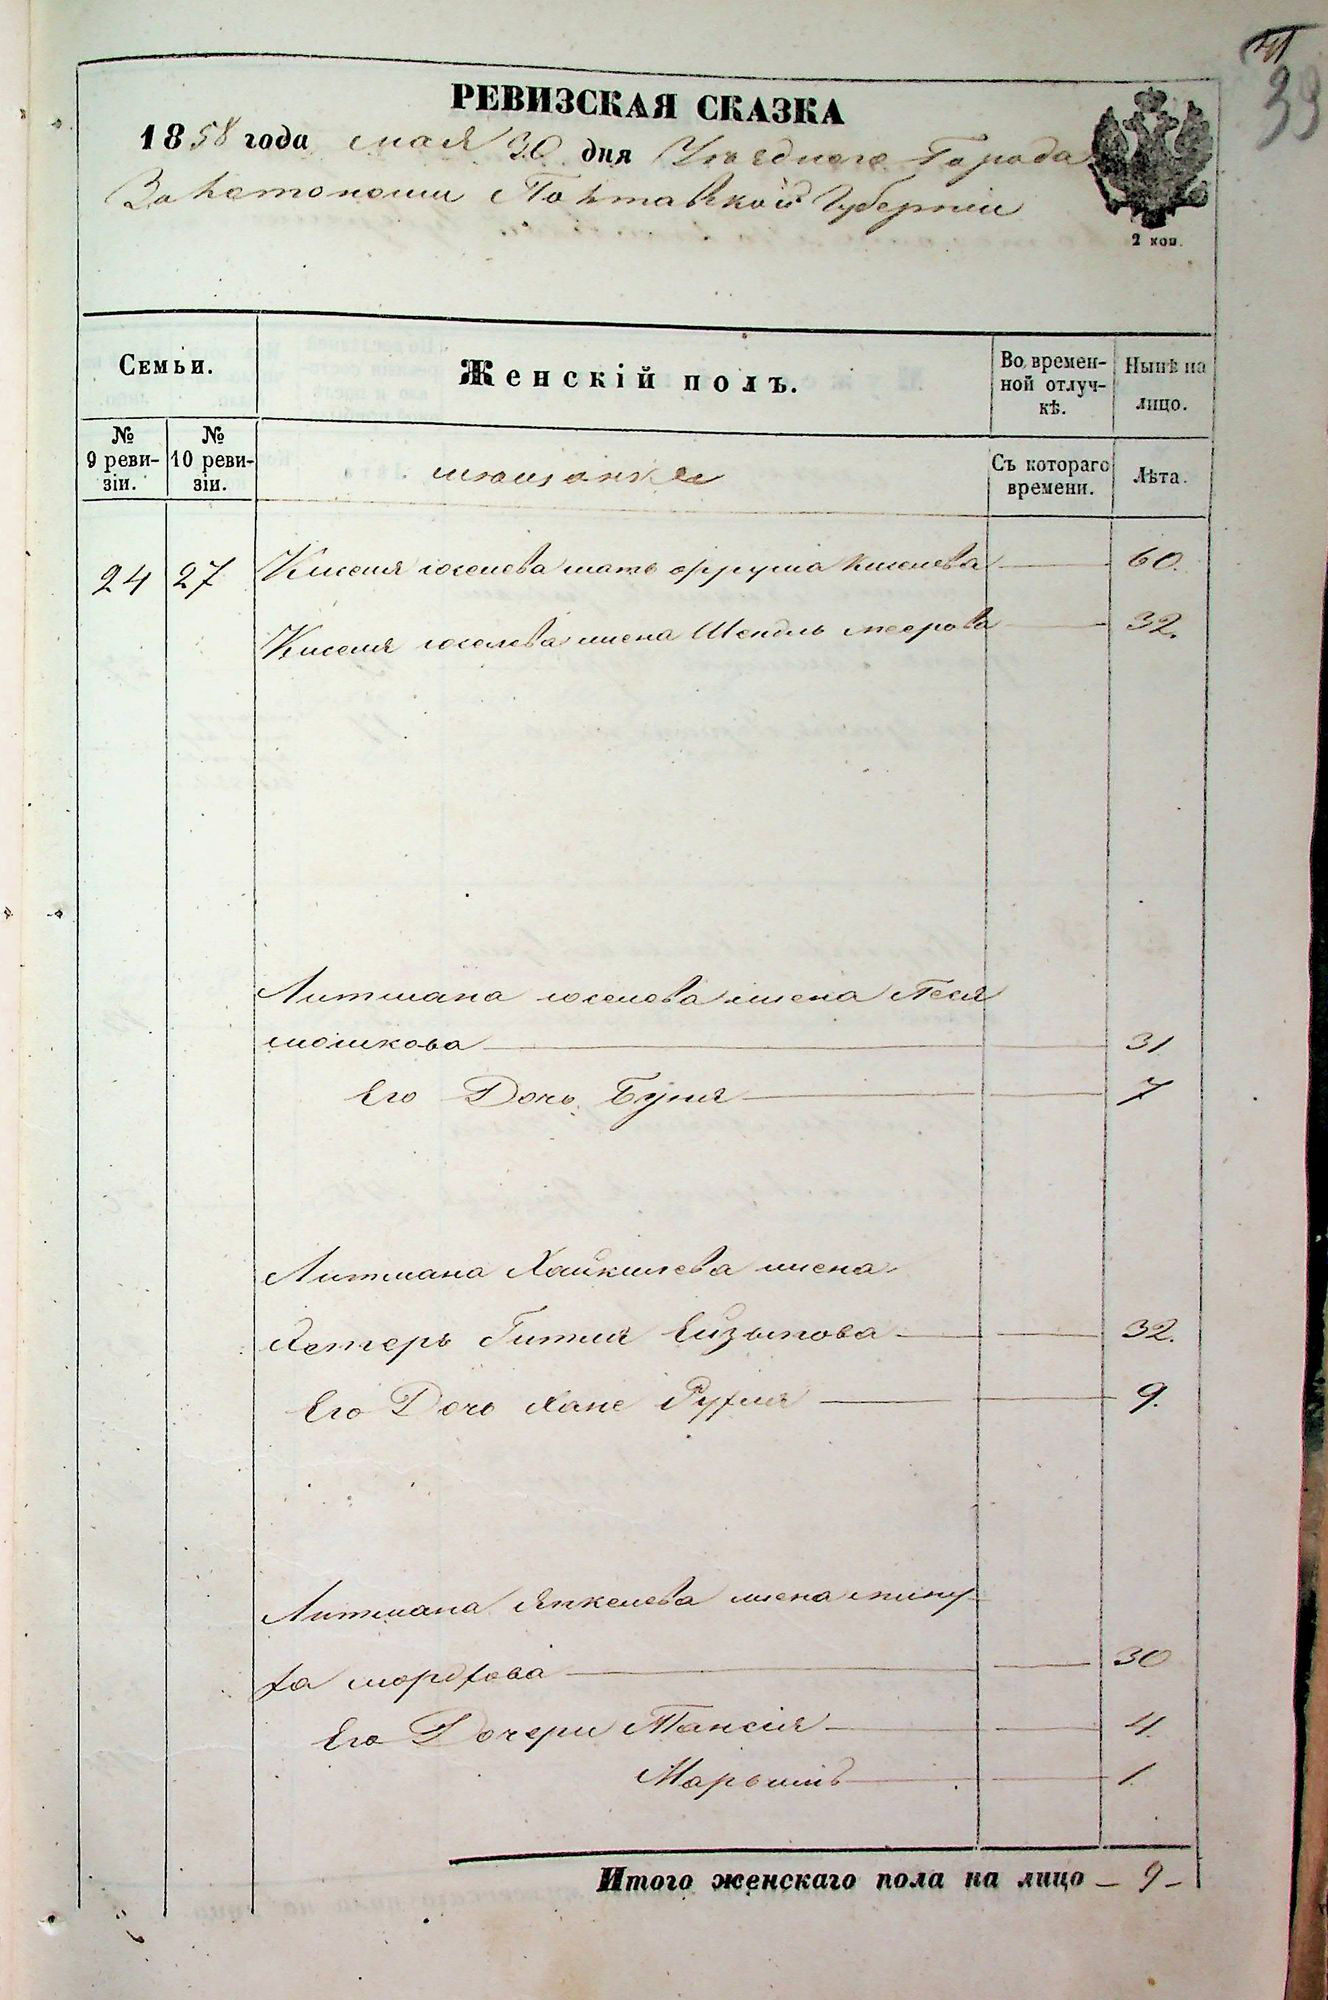 41
39
РЕВИЗСКАЯ СКАЗКА
1858 года мая 30 дня Уѣзднаго Города
Золотоноши Полтавской Губерніи
2 коп.
Семьи.
Женскій полъ.
Во времен-
ной отлуч-
кѣ.
Нынѣ на
лицо.
№
9 реви-
зіи.
№
10 реви-
зіи.
мещанка
Съ котораго
времени.
Лѣта.
24 27 Киселя юселева мать Фрума Киселева 60.
Киселя юселева жена Шендль меерова 32.
Литмана юселева жена Песя
мошкова 31
Его Дочь Буня 7
Литмана Хаикелева жена
Естерь Гитля Ейзыкова 32.
Его Дочь Хане Рухля 9.
Литмана Янкелева жена мину-
ха мордхова 30
Его Дочери Тансія 4.
Марьимъ 1.
Итого женскаго пола на лицо – 9 –